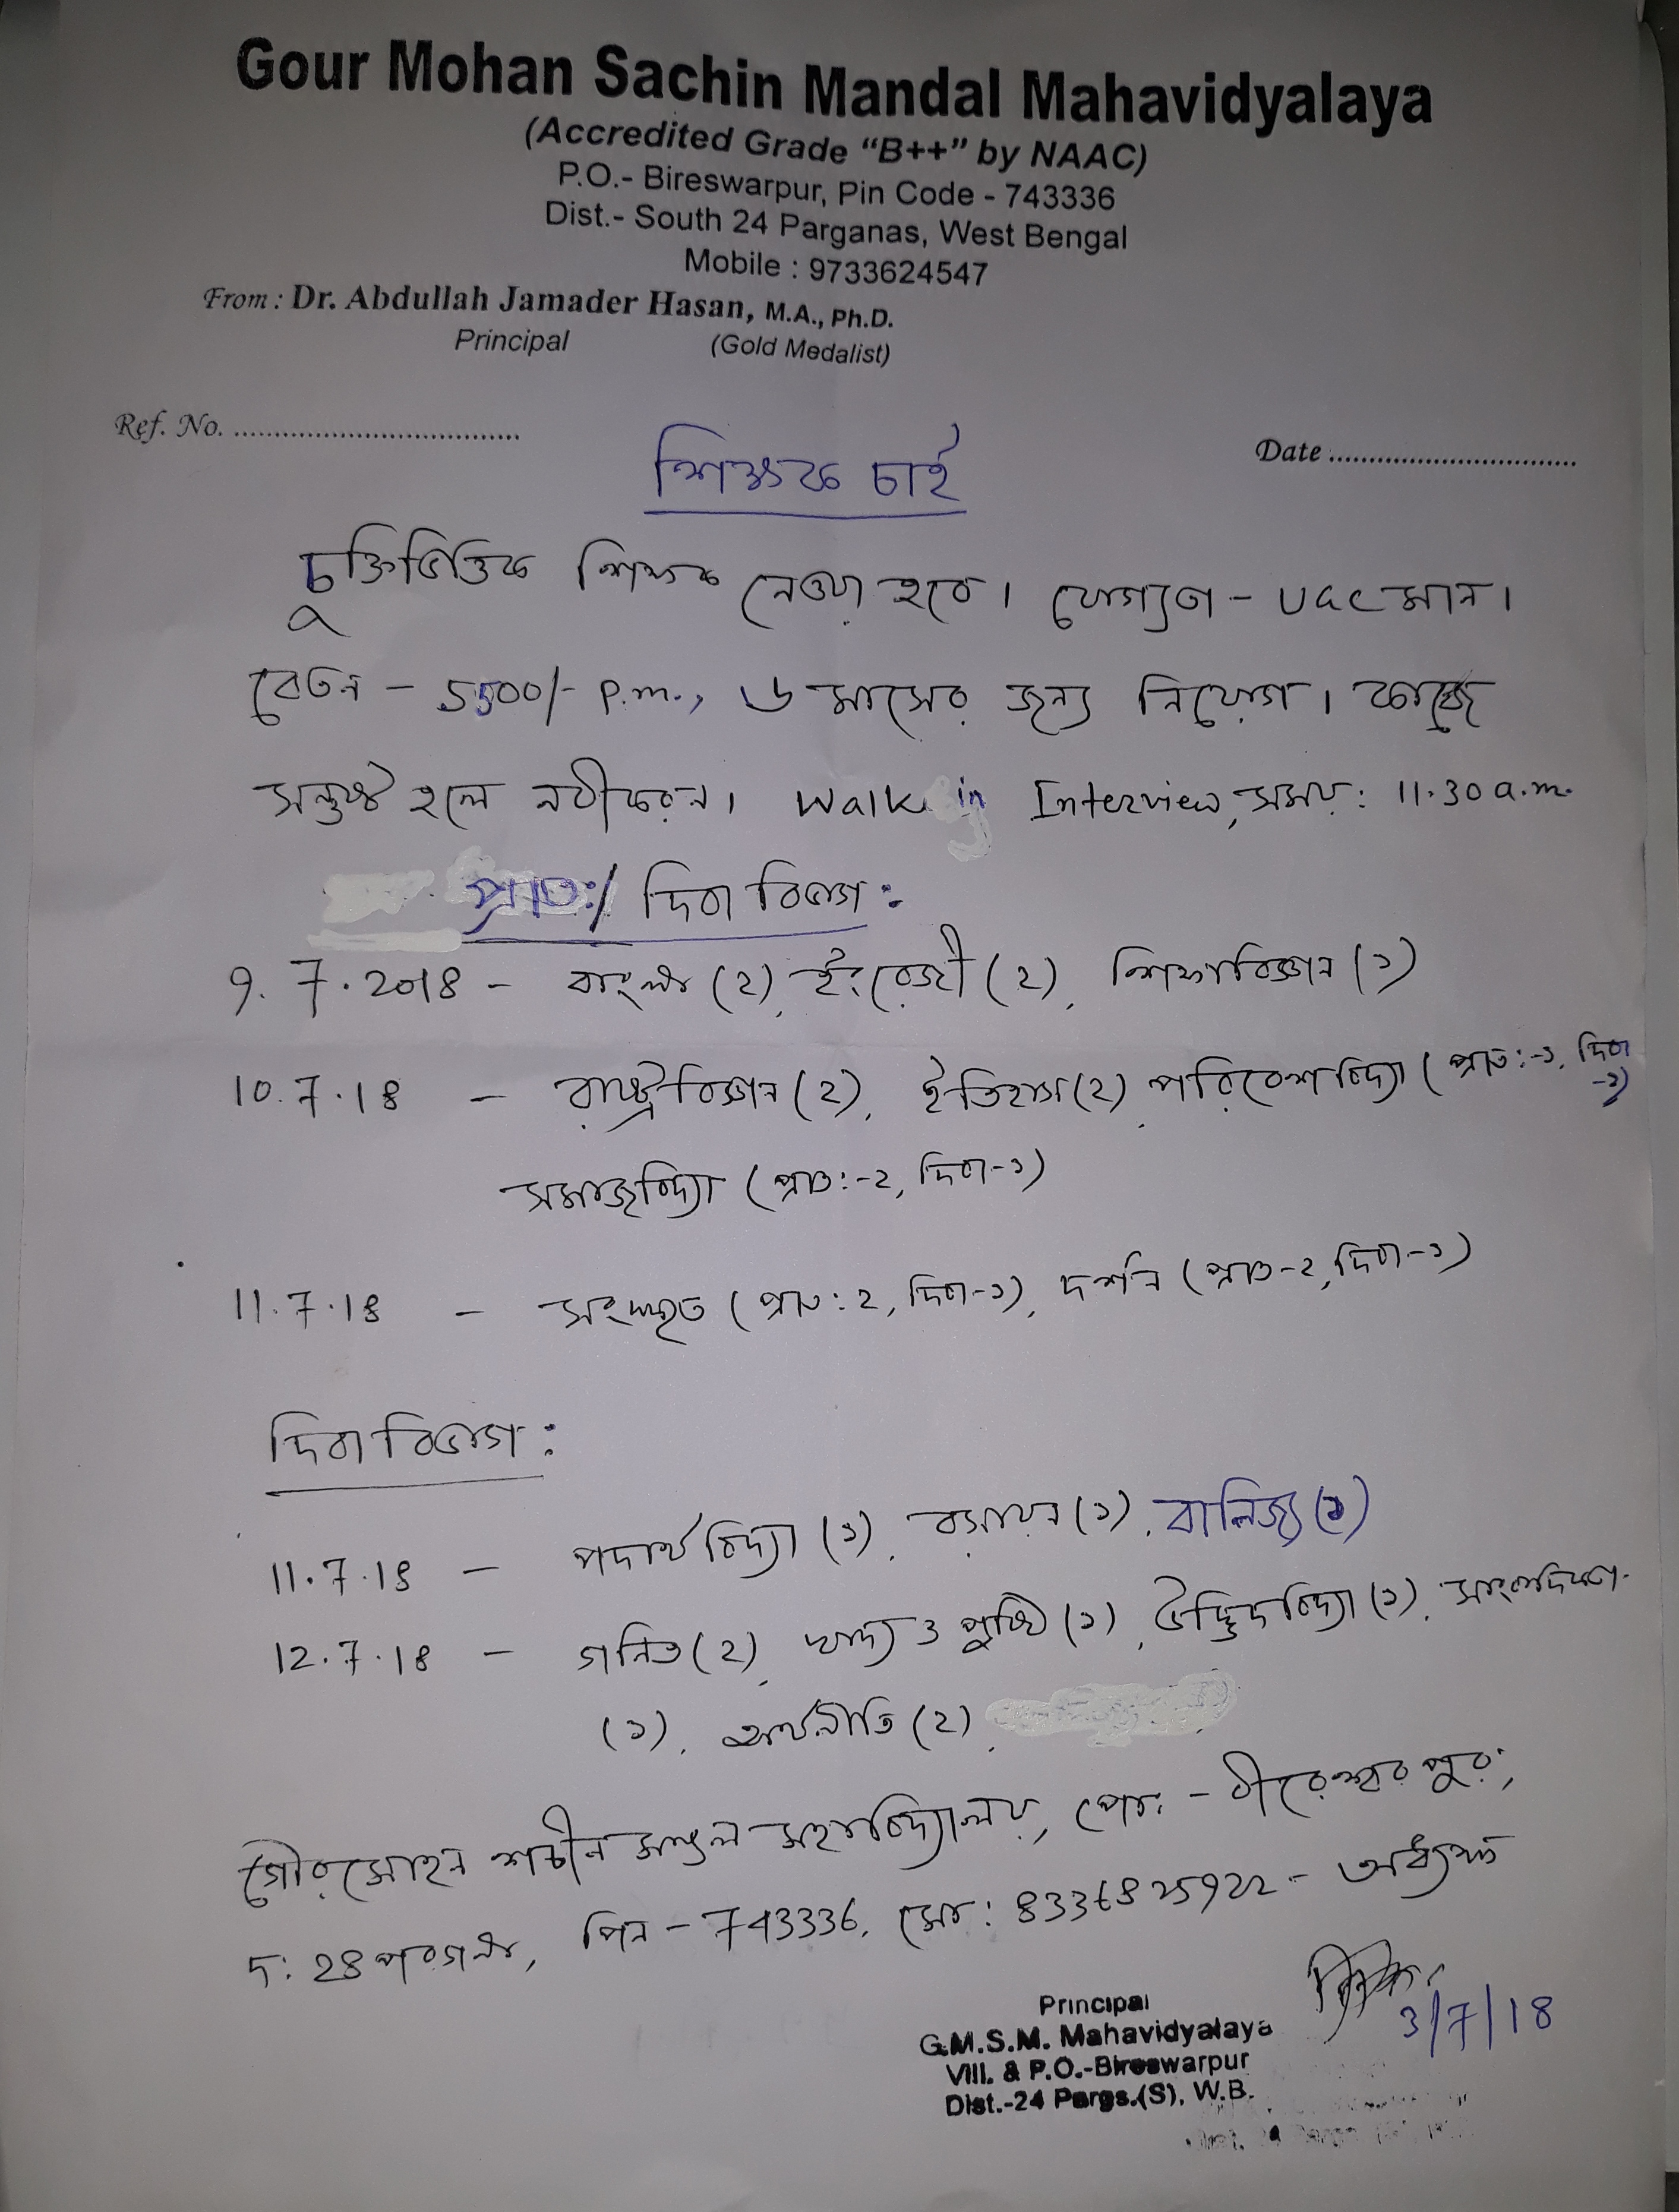 Gour Mohan Sachin Mandal Mahavidyalaya
(Accredited Grade “B++” by NAAC)
P.O.- Bireswarpur, Pin Code - 743336
Dist.- South 24 Parganas, West Bengal
Mobile : 9733624547
From : Dr. Abdullah Jamader Hasan, M.A., Ph.D.
Principal (Gold Medalist)
Ref. No. ................................... Date ..............................
শিক্ষক চাই
চুক্তিভিত্তিক শিক্ষক নেওয়া হবে। যোগ্যতা - UGC মান।
বেতন - 5500/- P.m., ৬ মাসের জন্য নিয়োগ। কাজে
সন্তুষ্ট হলে নবীকরন। Walk in Interview, সময়: 11.30 a.m.
প্রাত:/ দিবা বিভাগ :
9. 7. 2018 - বাংলা (2), ইংরেজী (2), শিক্ষাবিজ্ঞান (১)
10. 7. 18 - রাষ্ট্রবিজ্ঞান (2), ইতিহাস (2), পরিবেশবিদ্যা (প্রাত:-১, দিবা
-১)
সমাজবিদ্যা (প্রাত:-২, দিবা-১)
11. 7. 18 - সংস্কৃত (প্রাত: 2, দিবা-১), দর্শন (প্রাত-2, দিবা-১)
দিবা বিভাগ :
11. 7. 18 - পদার্থবিদ্যা (১), রসায়ন (১), বানিজ্য (১)
12. 7. 18 - গনিত (2), খাদ্য ও পুষ্টি (১), উদ্ভিদবিদ্যা (১), সাংবাদিকতা
(১), অর্থনীতি (2),
গৌরমোহন শচীন মণ্ডল মহাবিদ্যালয়, পো: - বীরেশ্বরপুর,
দ: 28 পরগনা, পিন - 743336, মো: 8336825922 - অধ্যক্ষ
3/7/18
Principal
G.M.S.M. Mahavidyalaya
Vill. & P.O.-Bireswarpur
Dist.-24 Pargs.(S), W.B.